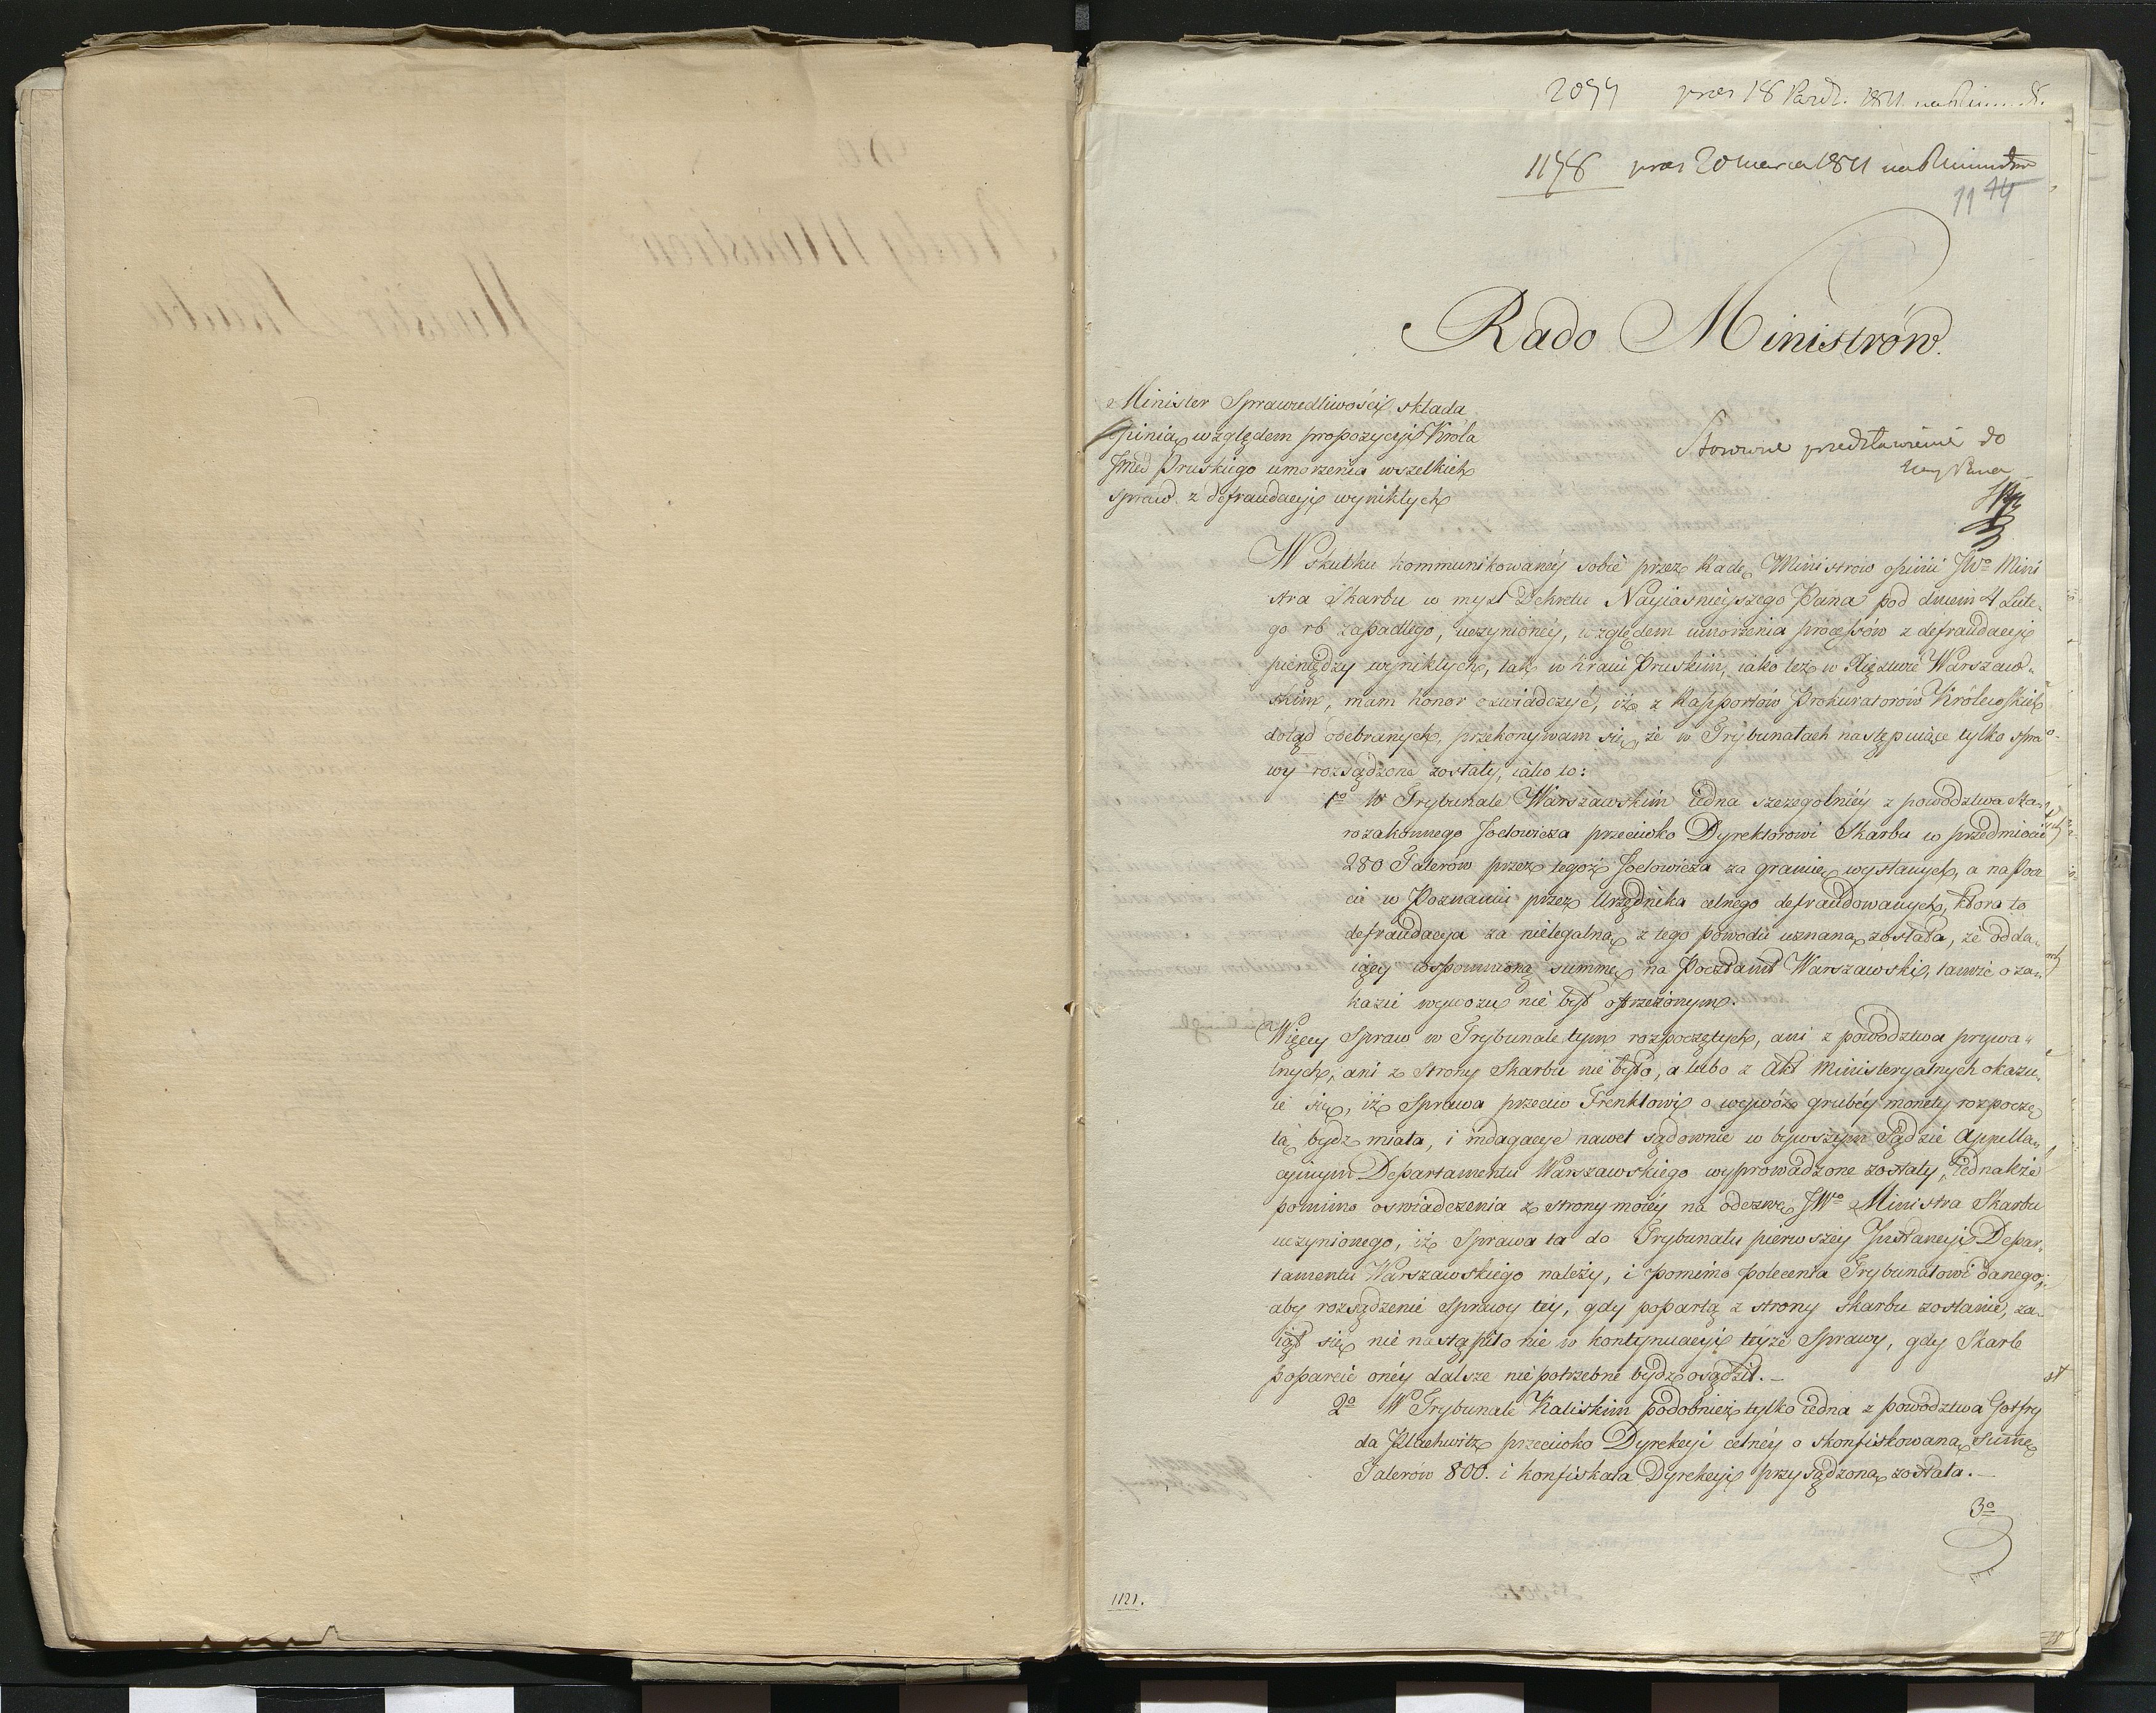 2044 pres 18 1811
1148 pres 20 marca 1811
11 44
Rado Ministrów.
Minister Sprawiedliwości składa
Opinią względem propozycyi Króla
Jmci Pruskiego umorzenia wszelkich
spraw z defraudacyi wynikłych
Stosowne przedstawienie do
Nay Pana
W skutku kommunikowanéy sobie przez Radę Ministrów opinii JWo Mini
stra Skarbu w myśl Dekretu Nayiaśnieyszego Pana pod dniem 4 Lute„
go rb zapadłego, uczynionéy, względem umorzenia processów z defraudacyi
pieniędzy wynikłych, tak w kraiu Pruskim, iako też w Xięztwie Warszaw„
skim, mam honor oświadczyć, iż z Rapportów Prokuratorów Królewskich
dotąd odebranych, przekonywam się, że w Trybunałach następuiące tylko spra
wy rozsądzone zostały, iako to:
1o W Trybunale Warszawskim iedna szczególniéy z powództwa Sta„
rozakonnego Joelowicza przeciwko Dyrektorowi Skarbu w przedmiocie
280 Talerów przez tegoż Joelowicza za granicę wysłanych, a na Pocz
cie w Poznaniu przez Urzędnika celnego defraudowanych, która to
defraudacya za nielegalną z tego powodu uznaną została, że odda„
iący wspomnioną summę na Pocztamt Warszawski, tamże o za„
kazie wywozu nie był ostrzeżonym.
Więcey Spraw w Trybunale tym rozpoczętych, ani z powództwa prywa„
tnych, ani z strony Skarbu nie było, a lubo z Akt Ministeryalnych okazu„
ie się, iż Sprawa przeciw Frenklowi o wywóz grubéy monety rozpoczę
tą bydź miała, i indagacye nawet sądownie w bywszym Sądzie Appella„
cyinym Departamentu Warszawskiego wyprowadzone zostały, iednakże
pomimo oświadczenia z strony moiéy na odezwę JWo Ministra Skarbu
uczynionego, iż Sprawa ta do Trybunału pierwszéy Instancyi Depar„
tamentu Warszawskiego należy, i pomimo polecenia Trybunałowi danego,
aby rozsądzenie Sprawy téy, gdy popartą z strony skarbu zostanie, za„
iął się nie nastąpiło nic w kontynuacyi téyże Sprawy, gdy Skarb
poparcie onéy dalsze niepotrzebne bydź osądził.—
2o W Trybunale Kaliskim podobnież tylko iedna z powództwa Gotfry
da przeciwko Dyrekcyi celnéy o skonfiskowaną summę
Talerów 800. i konfiskata Dyrekcyi przysądzoną została.—
3o
1121.